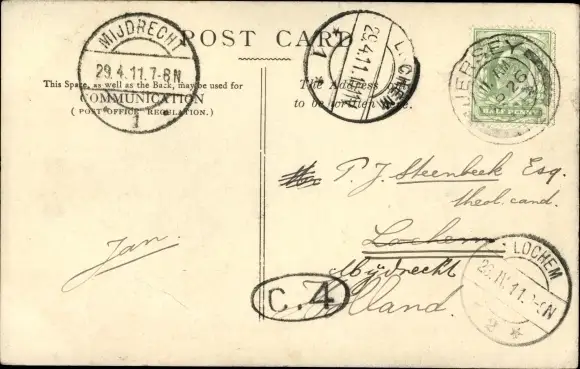 POST CARD
MIJDRECHT
29.4.11.7-8N
1
LOCHEM
29.4.11.
1
JERSEY
26
HALFPENNY
This Space, as well as the Back, may be used for
COMMUNICATION
( POST OFFICE REGULATION. )
The Address
to be written
T. J. Steenbeek Esq.
theol. cand.
Lochem
Mijdrecht
Holland.
Jan.
C.4
LOCHEM
2